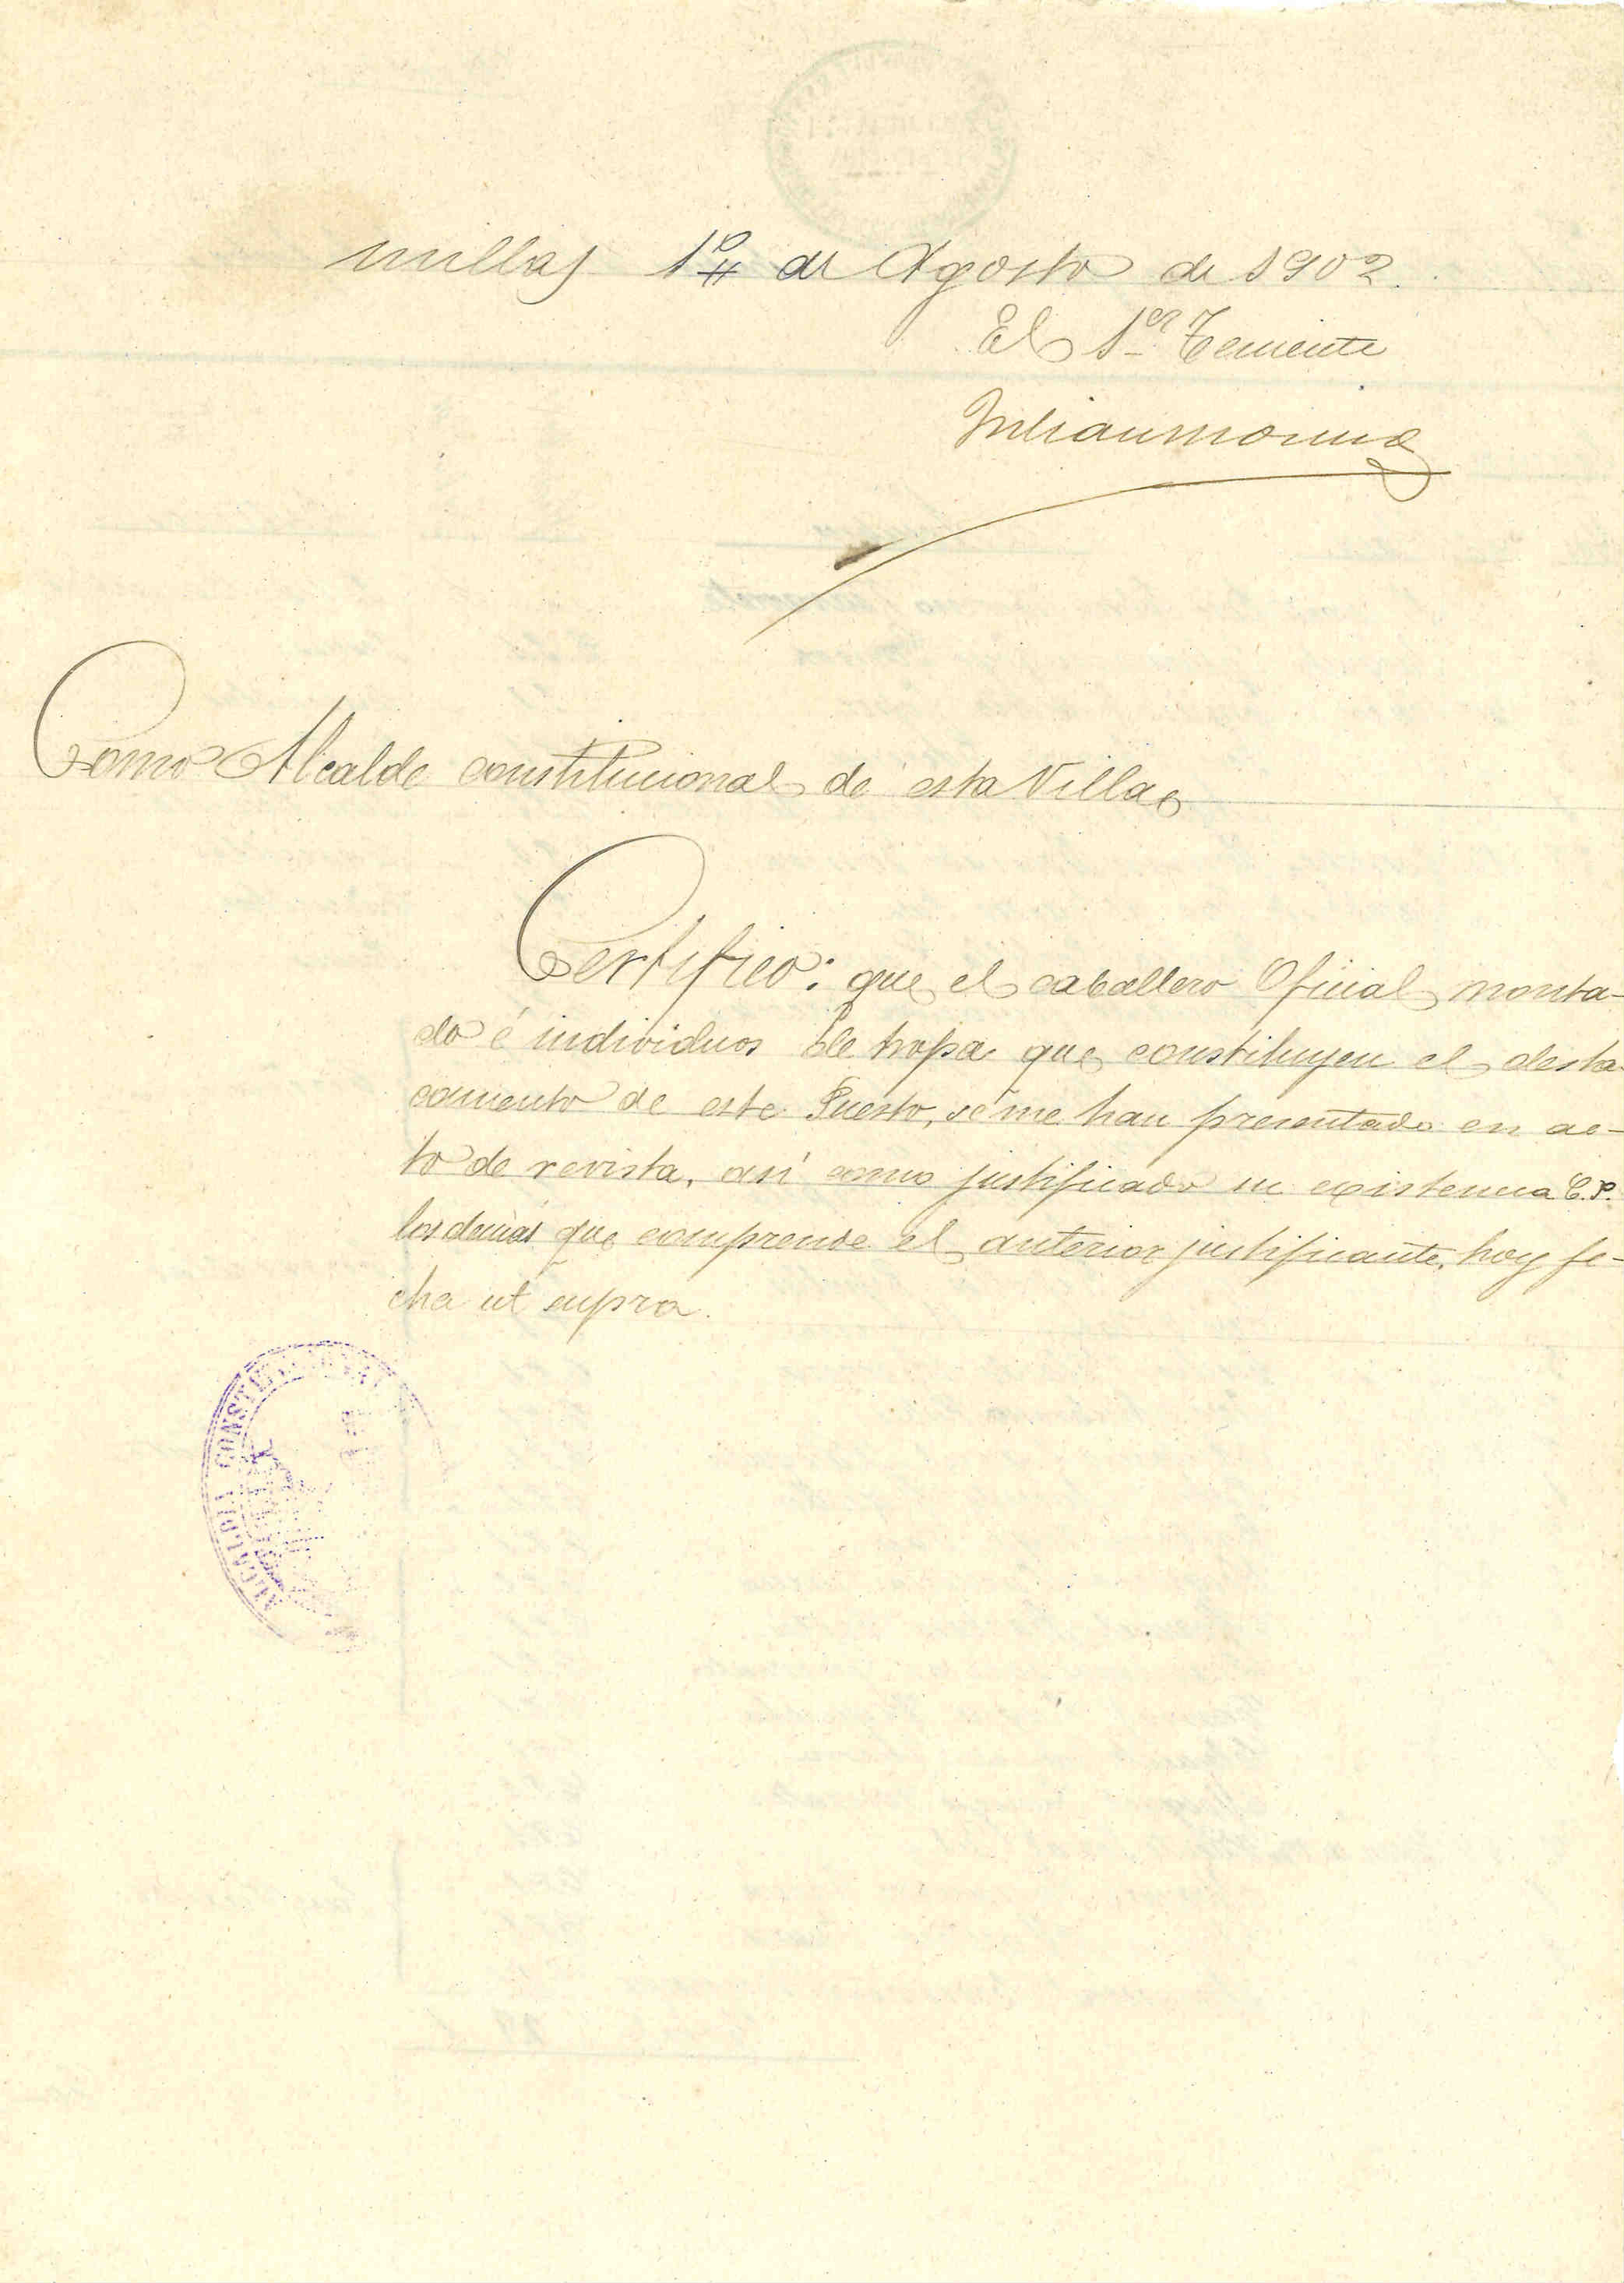 Millas 1º de Agosto de 1902.
El 1er Teniente
Como Alcalde constitucional de esta Villa
Certifico: que el caballero Oficial monta-
do é individuos de tropa que constituyen el desta-
camento de este Puesto, se me han presentado en ac-
to de revista, así como justificado su existencia C.P.
los demás que comprende el anterior justificante, hoy fe-
cha ut supra.
ALCALDIA CONSTITUCIONAL